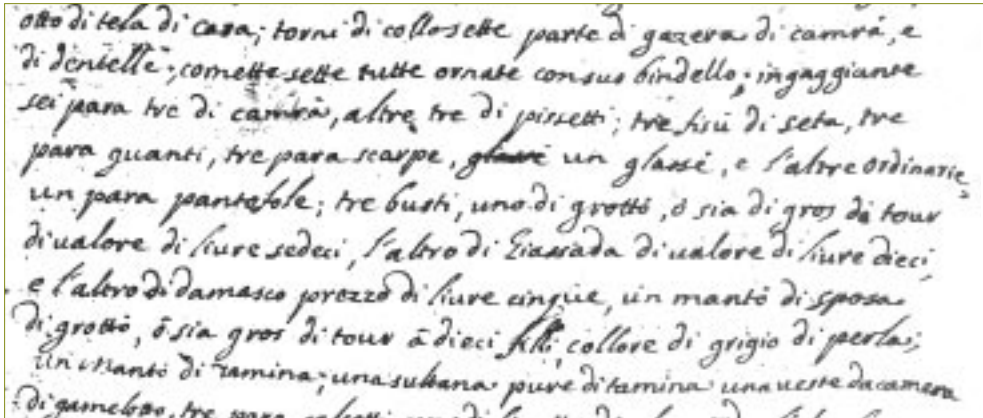 otto di tela di casa; torni di collo sette parte di gazera di camrá, e
di dentelle; comette sette tutte ornate con suo bindello; ingaggiante
sei para tre di camrà, altre tre di pissetti; tre fisú di seta, tre
para guanti, tre para scarpe, glassé un glassé, e l'altre ordinarie,
un para pantofole; tre busti, uno di grottó, ó sia di gros di tour
di valore di livre sedeci, l'altro di di valore di livre dieci,
e l'altro di damasco prezzo di livre cinque, un mantó di sposa
di grottó, ó sia gros di tour á dieci fili, collore di grigio di perla;
un mantó di tamina; una sultana pure di tamina una veste da camera
di gamelotto, tre para